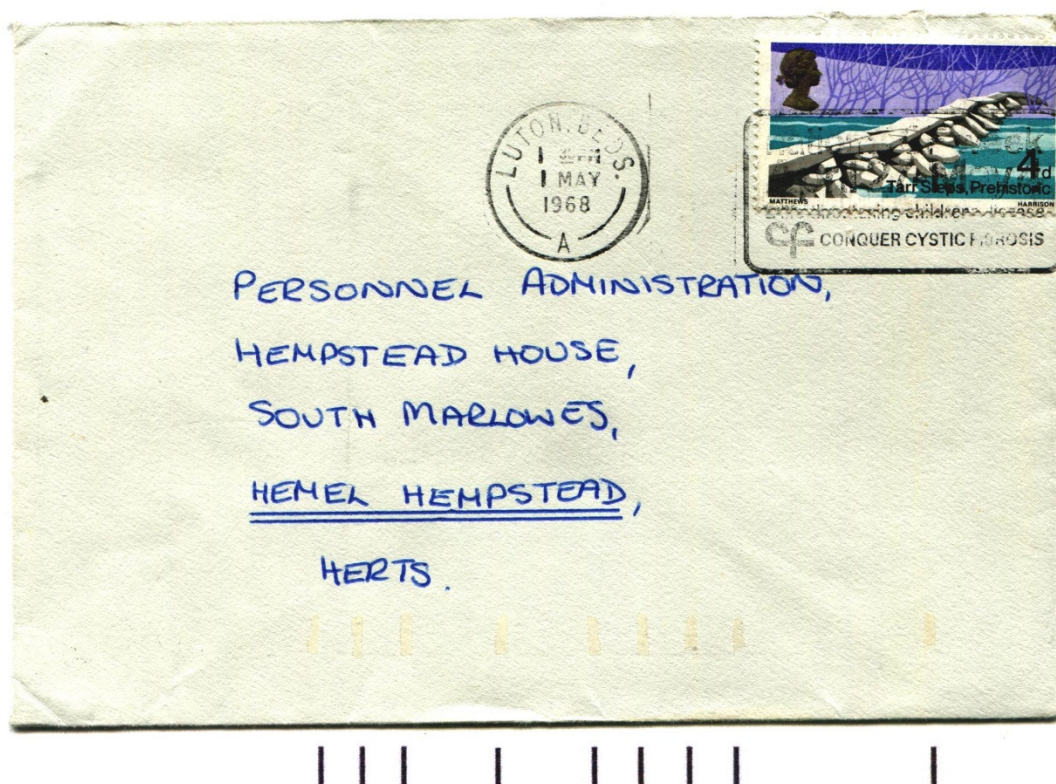 LUTON. BEDS.
1 MAY
1968
A
4d
Tarr Steps, Prehistoric
MATTHEWS
HARRISON
children
cf CONQUER CYSTIC FIBROSIS
PERSONNEL ADMINISTRATION,
HEMPSTEAD HOUSE,
SOUTH MARLOWES,
HEMEL HEMPSTEAD,
HERTS.